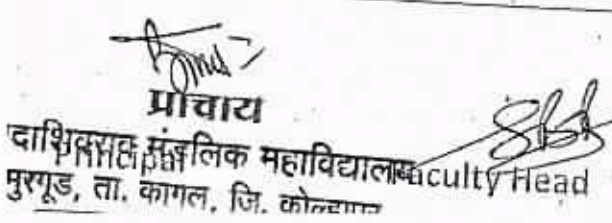 प्राचार्य
दाशिवराव मंडलिक महाविद्यालय
Principal Faculty Head
मुरगूड, ता. कागल, जि. कोल्हापूर